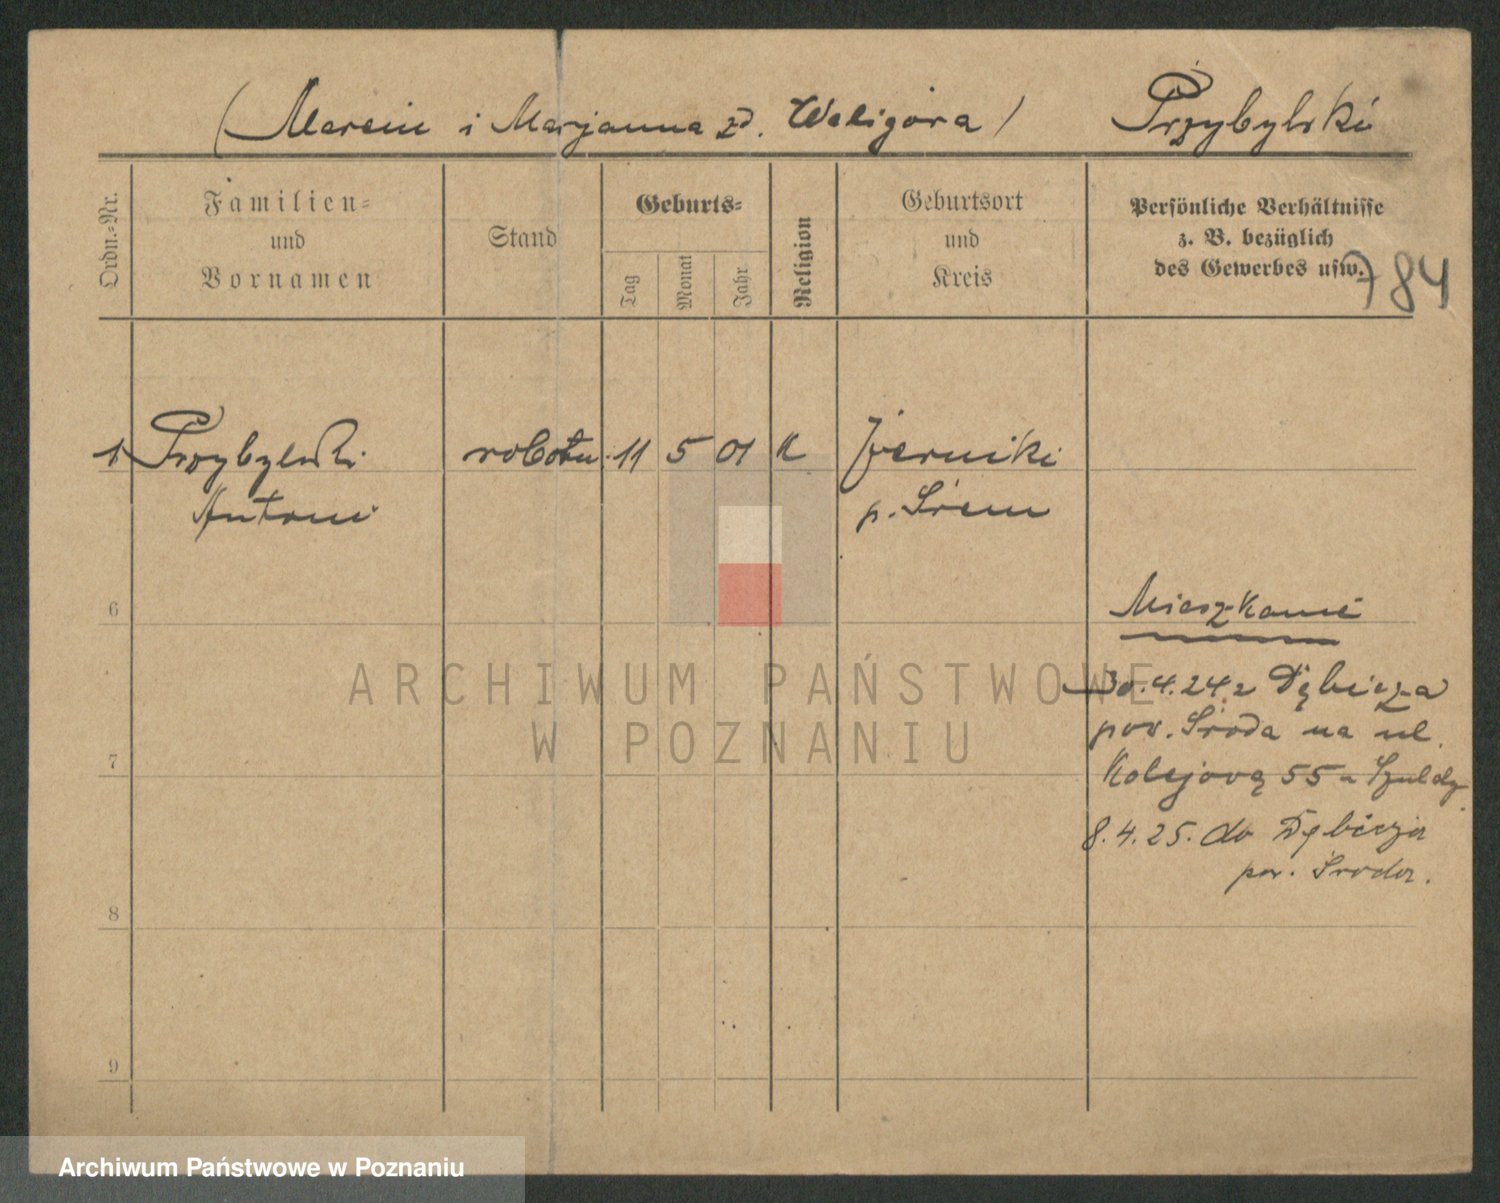 (Marcin i Marjanna zd. Waligóra) Przybylski
Ordn.-Nr.
Familien-
und
Vornamen
Stand
Geburts-
Tag
Monat
Jahr
Religion
Geburtsort
und
Kreis
Persönliche Verhältnisse
z. B. bezüglich
des Gewerbes usw.
784
1 Przybylski robotn. 11 5 01 K Żerniki
Antoni p. Śrem
6
Mieszkanie
30.4.24 z Dębicza
pow. Środa na ul.
Kolejową 55
8.4.25. do Dębicza
pow. Środa.
7
8
9
ARCHIWUM PAŃSTWOWE
W POZNANIU
Archiwum Państwowe w Poznaniu